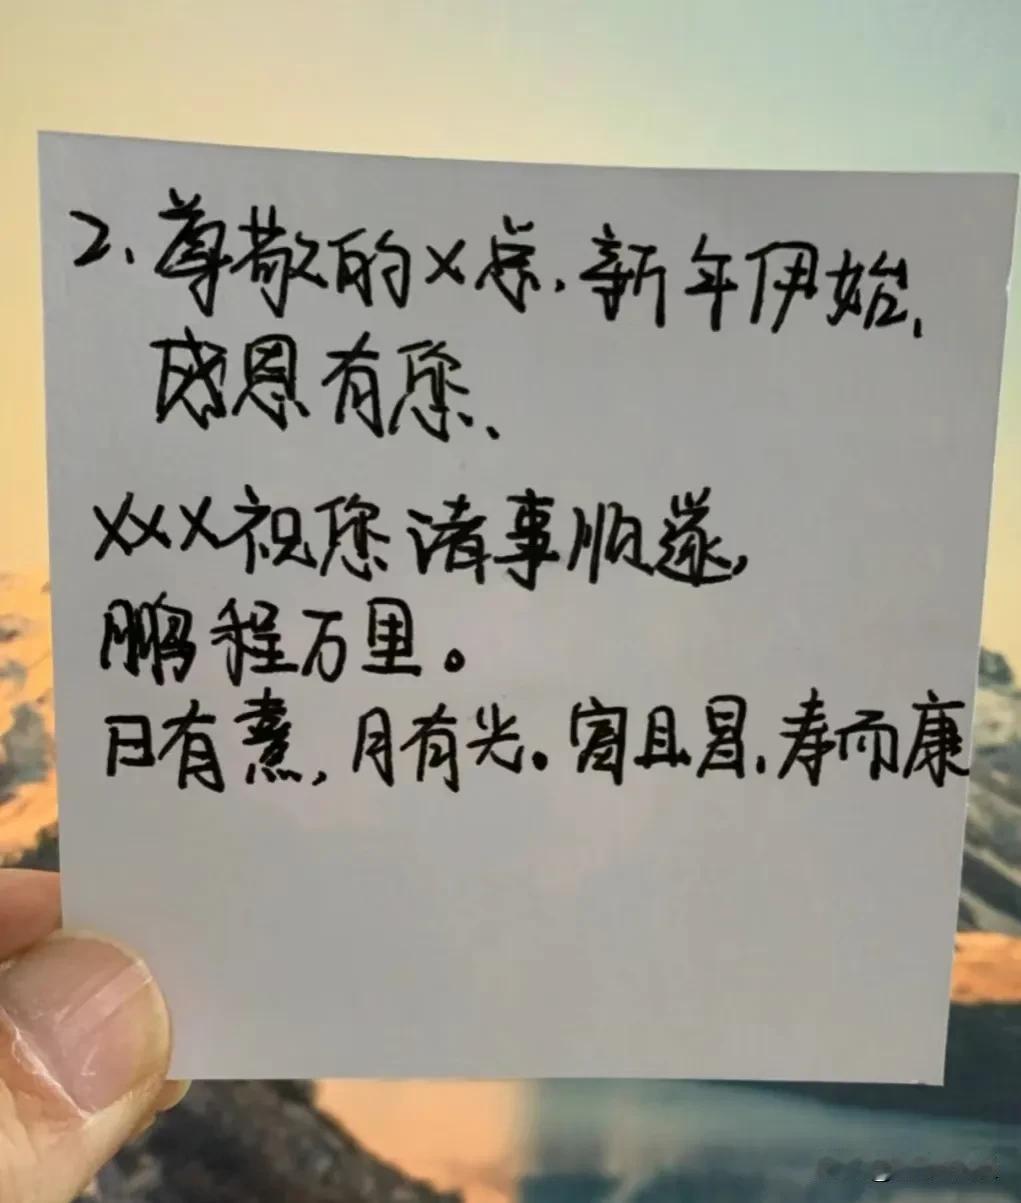 2、尊敬的X总、新年伊始、
感恩有您、
XXX祝您诸事顺遂,
鹏程万里。
日有熹,月有光。富且昌,寿而康